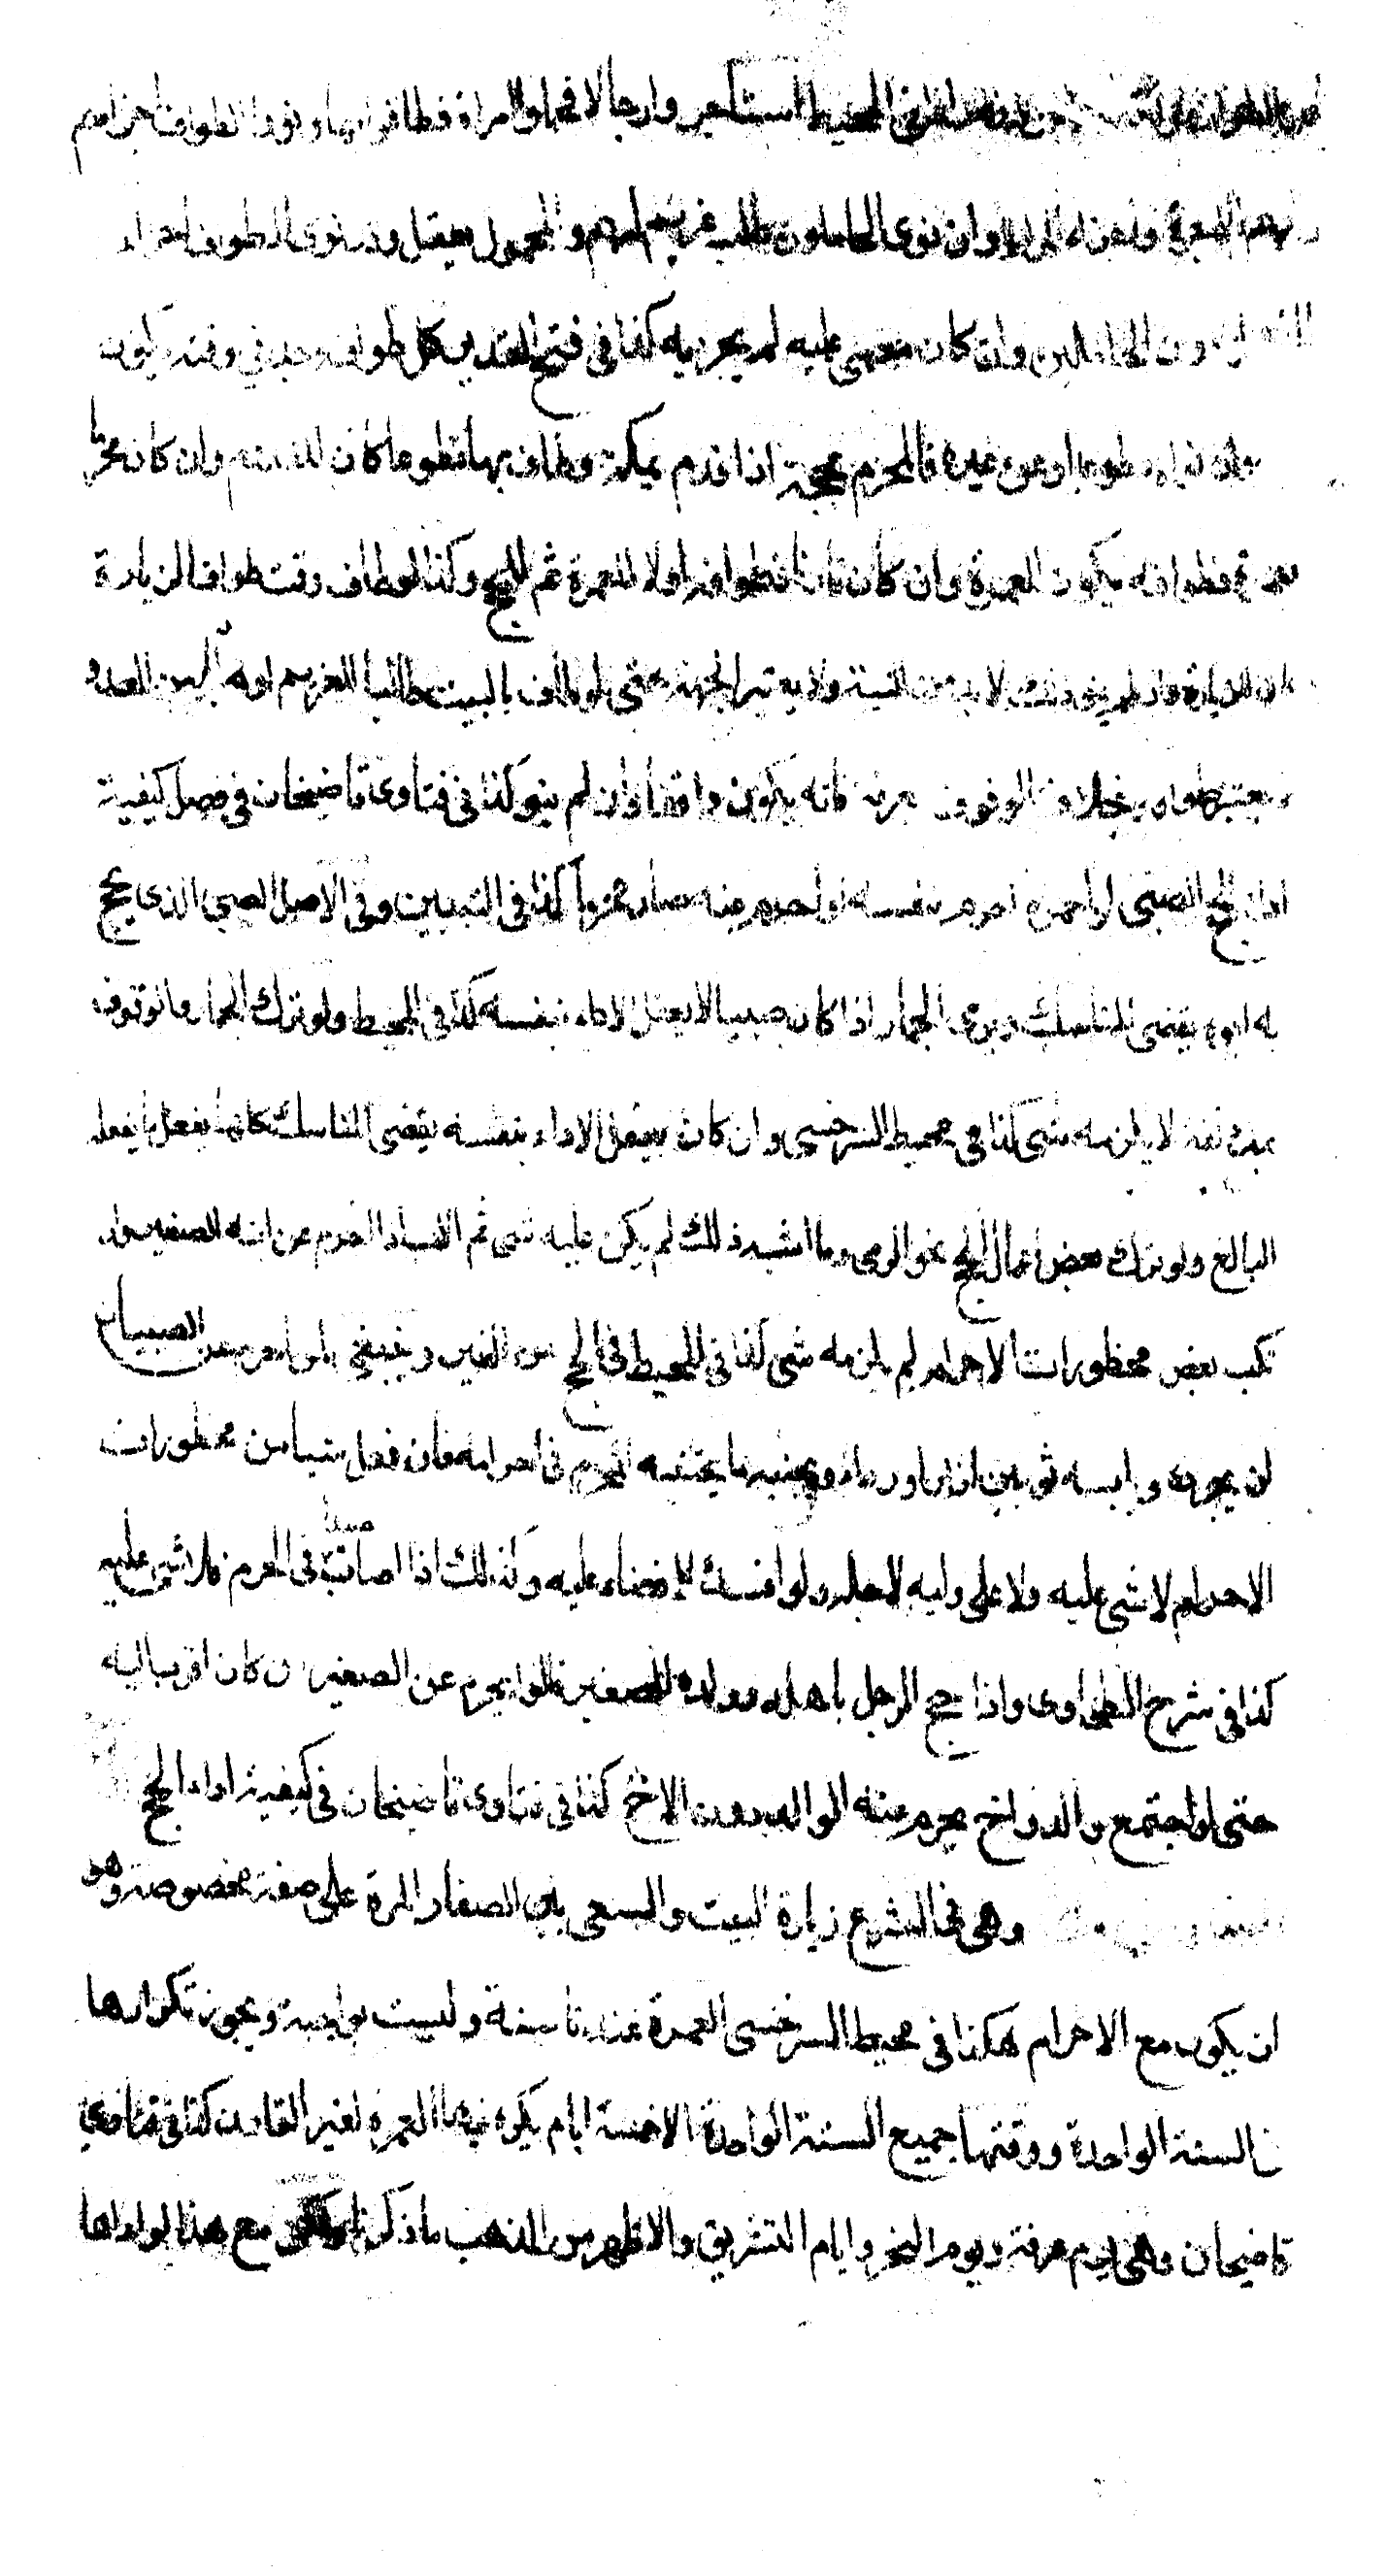 استأجر رجالا فحملوا امراة فطافوا بها ونووا الطواف اجزاهم
وان نوى الحاملون طلب غريم لهم والمحمول يعقل وقد نوى الطواف اجزاء
دون الحاملين وان كان مغمى عليه لم يجزيه كذا في فتح القدير كل طواف وجب في وقته يكون
وان نواه تطوعا او عن غيره فالمحرم بحجة اذا قدم بمكة وطاف بها تطوعا كان للقدوم وان كان محرما
بعمرة فطوافه يكون للعمرة وان كان قارنا فطوافه اولا للعمرة ثم للحج وكذا لو طاف وقت طواف الزيارة
لا بد من النية ولا يعتبر الجهة حتى لو طاف بالبيت طالبا لغريم او هاربا من العدو
لا يعتبر طوافه بخلاف الوقوف بعرفة فانه يكون واقفا وان لم ينو كذا في فتاوى قاضيخان في فصل كيفية
اداء الحج الصبى لو احرم بنفسه او احرم عنه صار محرما كذا في التبيين وفي الاصل الصبي الذى يحج
به ابوه يقضى المناسك ويرمى الجمار اذا كان صبيا لا يعقل الاداء بنفسه كذا في المحيط ولو ترك الجمار والوقوف
بمزدلفة لا يلزمه شى كذا في محيط السرخسى وان كان يعقل الاداء بنفسه يقضى المناسك كلها يفعل ما يفعله
البالغ ولو ترك بعض اعمال الحج نحو الرمى وما اشبه ذلك لم يكن عليه شى ثم الاب اذا احرم عن ابنه الصغير وار
تكب بعض محظورات الاحرام لم يلزمه شى كذا في المحيط في الحج عن الغير وينبغي لمن احرم عن الصبيان
ان يجرده ويلبسه ثوبين ازارا ورداء ويجنبه ما يجتنبه المحرم في احرامه فان فعل شيا من محظورات
الاحرام لا شى عليه ولا على وليه لاجله ولو افسد لا قضاء عليه وكذلك اذا اصاب صيدا في الحرم فلا شى عليه
كذا في شرح الطحاوى واذا حج الرجل باهله وولده الصغير قالوا يحرم عن الصغير من كان اقرب اليه
حتى لو اجتمع والد واخ يحرم عنه الوالد دون الاخ كذا في فتاوى قاضيخان في كيفية اداء الحج
وهى في الشرع زيارة البيت والسعى بين الصفا والمروة على صفة مخصوصة وهو
ان يكون مع الاحرام هكذا في محيط السرخسى العمرة عندنا سنة وليست بواجبة ويجوز تكرارها
في السنة الواحدة ووقتها جميع السنة الواحدة الا خمسة ايام يكره فيها العمرة لغير القارن كذا في فتاوي
قاضيخان وهى يوم عرفة ويوم النحر وايام التشريق والاظهر من المذهب ما ذكرنا ولكن مع هذا لو اداها